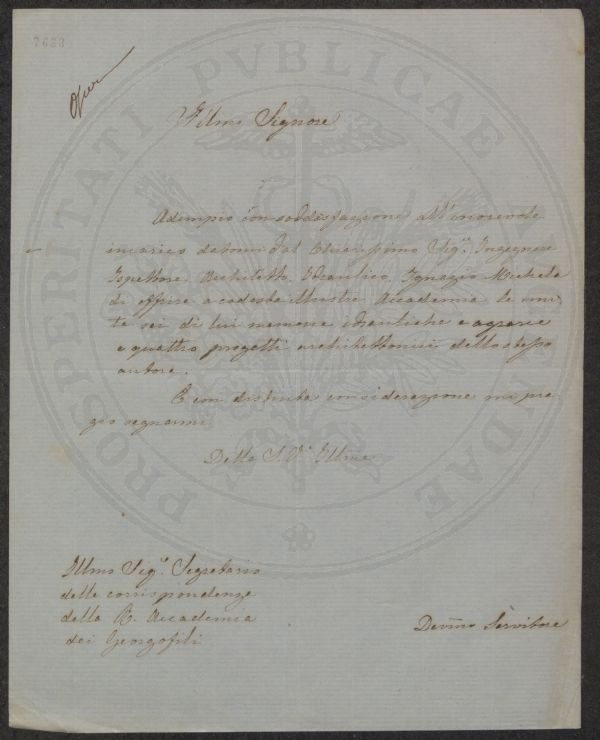 7683
Illmo Signore
Adempio con soddisfazione all'onorevole
incarico datomi dal Chiarissimo Sigr. Ingegnere
Ispettore Architetto Idraulico, Ignazio Michela
di offrire a codesta Illustre Accademia le uni-
te sei di lui memorie idrauliche e agrarie
e quattro progetti architettonici dello stesso
autore.
E con distinta considerazione mi pre-
gio segnarmi
Della S. V. Illma
Illmo Sigr. Segretario
delle corrispondenze
della R. Accademia
dei Georgofili
Devmo Servitore
PROSPERITATI PVBLICAE AVGENDAE